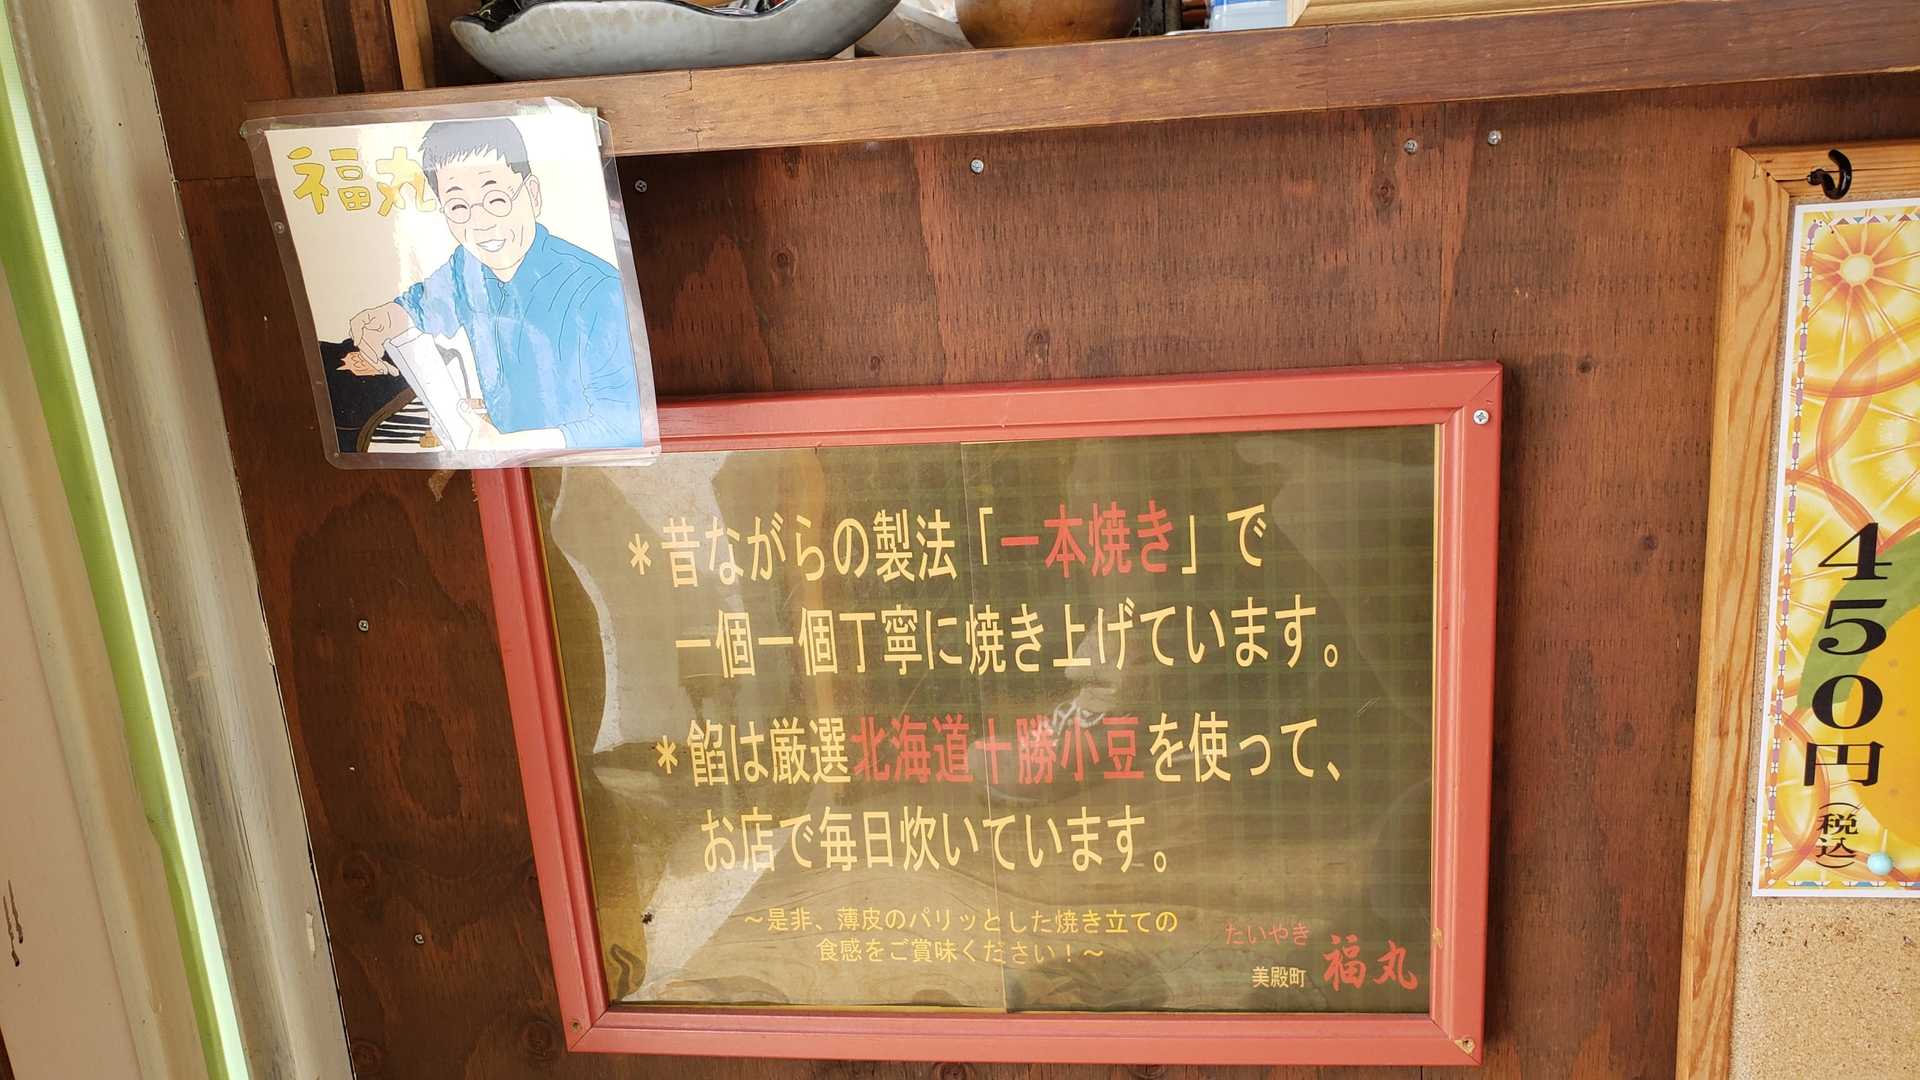 福丸
*昔ながらの製法「一本焼き」で
一個一個丁寧に焼き上げています。
*餡は厳選北海道十勝小豆を使って、
お店で毎日炊いています。
～是非、薄皮のパリッとした焼き立ての
食感をご賞味ください！～
たいやき
美殿町 福丸
450円(税込)